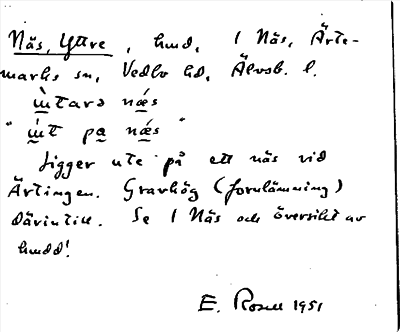 Näs, Yttre, hmd, 1 Näs, Ärte-
marks sn, Vedbo hd, Älvsb. l.
ẁtarə næ̀s
"ẁt pa næ̀s"
Ligger ute på ett näs vid
Ärtingen. Gravhög (fornlämning)
därintill. Se 1 Näs och översikt av
hmdd!
E. Rosell 1951